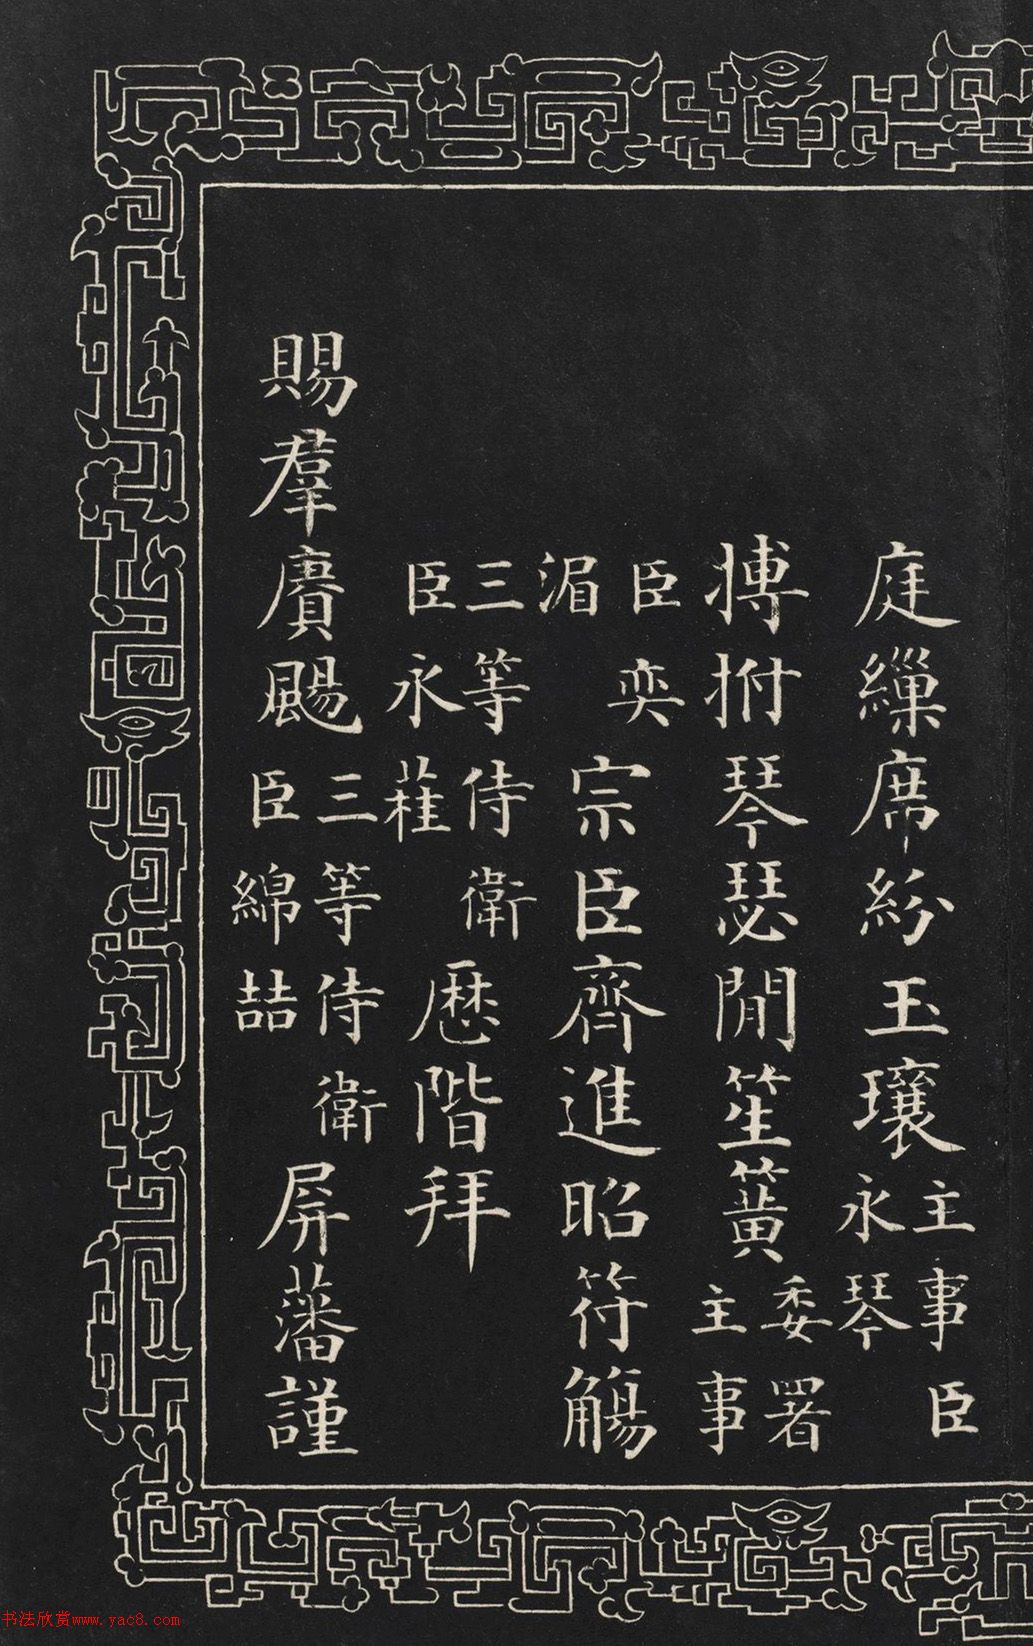 庭繅席紛玉瓖主事臣永琴
搏拊琴瑟閒笙簧委署主事
臣奕湄宗臣齊進昭符觴
三等侍衛臣永厯階拜
賜羣賡颺三等侍衛臣綿喆屏藩謹
书法欣赏www.yac8.com